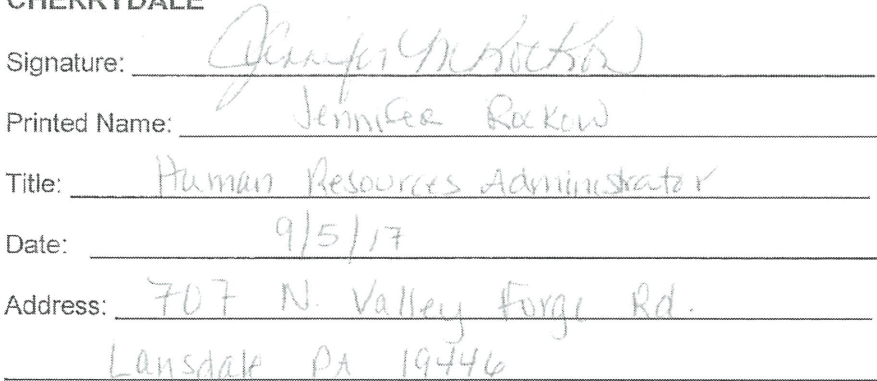 CHERRYDALE
Signature: Jennifer M Rockow
Printed Name: Jennifer Rockow
Title: Human Resources Administrator
Date: 9/5/17
Address: 707 N. Valley Forge Rd.
Lansdale PA 19446